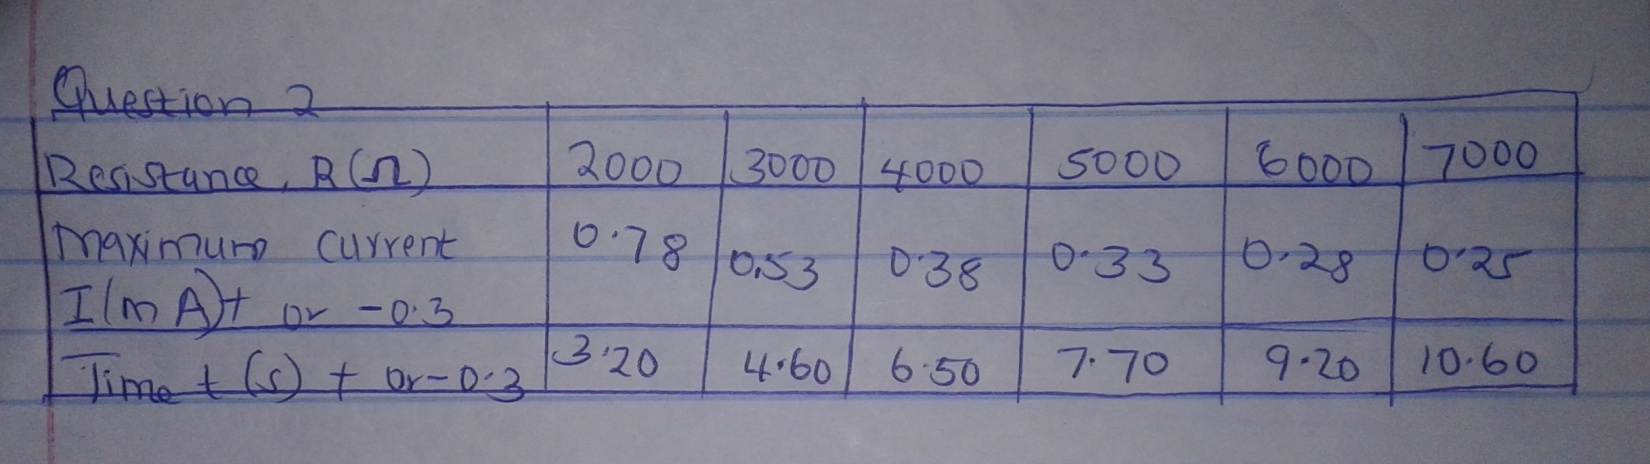 Question 2
Resistance, R(Ω) 2000 3000 4000 5000 6000 7000
Maximum current 0.78 0.53 0.38 0.33 0.28 0.25
I(mA)+ or -0.3
Time t (s) + or -0.3 3.20 4.60 6.50 7.70 9.20 10.60